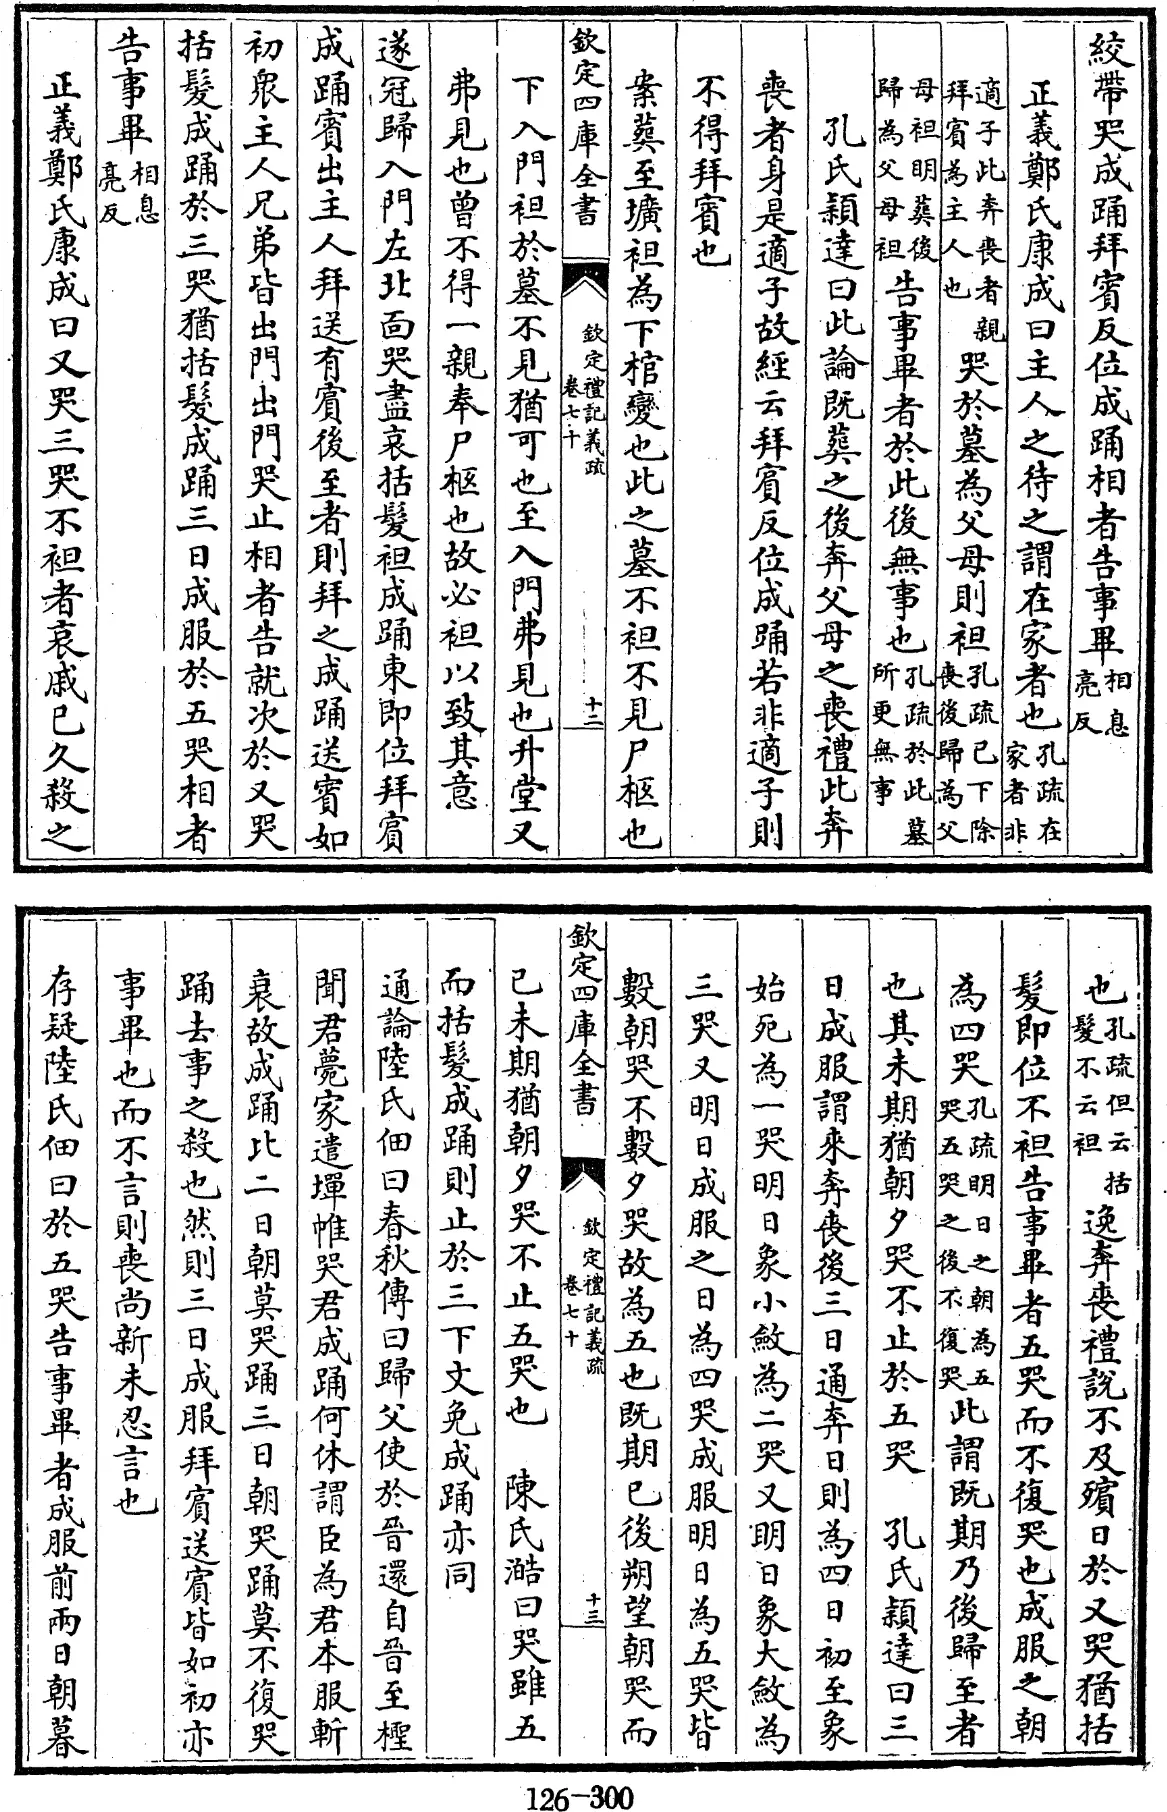 絞帶哭成踊拜賓反位成踊相者告事畢相息亮反
正義鄭氏康成曰主人之待之謂在家者也孔疏在家者非
適子此奔喪者親拜賓為主人也哭於墓為父母則袒孔疏已下除喪後歸為父
母袒明葬後歸為父母袒告事畢者於此後無事也孔疏於此墓所更無事
孔氏穎達曰此論既葬之後奔父母之喪禮此奔
喪者身是適子故經云拜賓反位成踊若非適子則
不得拜賓也
案葬至壙袒為下棺變也此之墓不袒不見尸柩也
欽定四庫全書
欽定禮記義疏
卷七十
十二
下入門袒於墓不見猶可也至入門弗見也升堂又
弗見也曾不得一親奉尸柩也故必袒以致其意
遂冠歸入門左北面哭盡哀括髮袒成踊東即位拜賓
成踊賓出主人拜送有賓後至者則拜之成踊送賓如
初衆主人兄弟皆出門出門哭止相者告就次於又哭
括髮成踊於三哭猶括髮成踊三日成服於五哭相者
告事畢相息亮反
正義鄭氏康成曰又哭三哭不袒者哀戚已久殺之
也孔疏但云括髮不云袒逸奔喪禮說不及殯日於又哭猶括
髮即位不袒告事畢者五哭而不復哭也成服之朝
為四哭孔疏明日之朝為五哭五哭之後不復哭此謂既期乃後歸至者
也其未期猶朝夕哭不止於五哭　孔氏穎達曰三
日成服謂來奔喪後三日通奔日則為四日初至象
始死為一哭明日象小斂為二哭又明日象大斂為
三哭又明日成服之日為四哭成服明日為五哭皆
數朝哭不數夕哭故為五也既期已後朔望朝哭而
欽定四庫全書
欽定禮記義疏
卷七十
十三
已未期猶朝夕哭不止五哭也　陳氏澔曰哭雖五
而括髮成踊則止於三下文免成踊亦同
通論陸氏佃曰春秋傳曰歸父使於晉還自晉至檉
聞君薨家遣墠帷哭君成踊何休謂臣為君本服斬
衰故成踊比二日朝莫哭踊三日朝哭踊莫不復哭
踊去事之殺也然則三日成服拜賓送賓皆如初亦
事畢也而不言則喪尚新未忍言也
存疑陸氏佃曰於五哭告事畢者成服前兩日朝暮
126-300